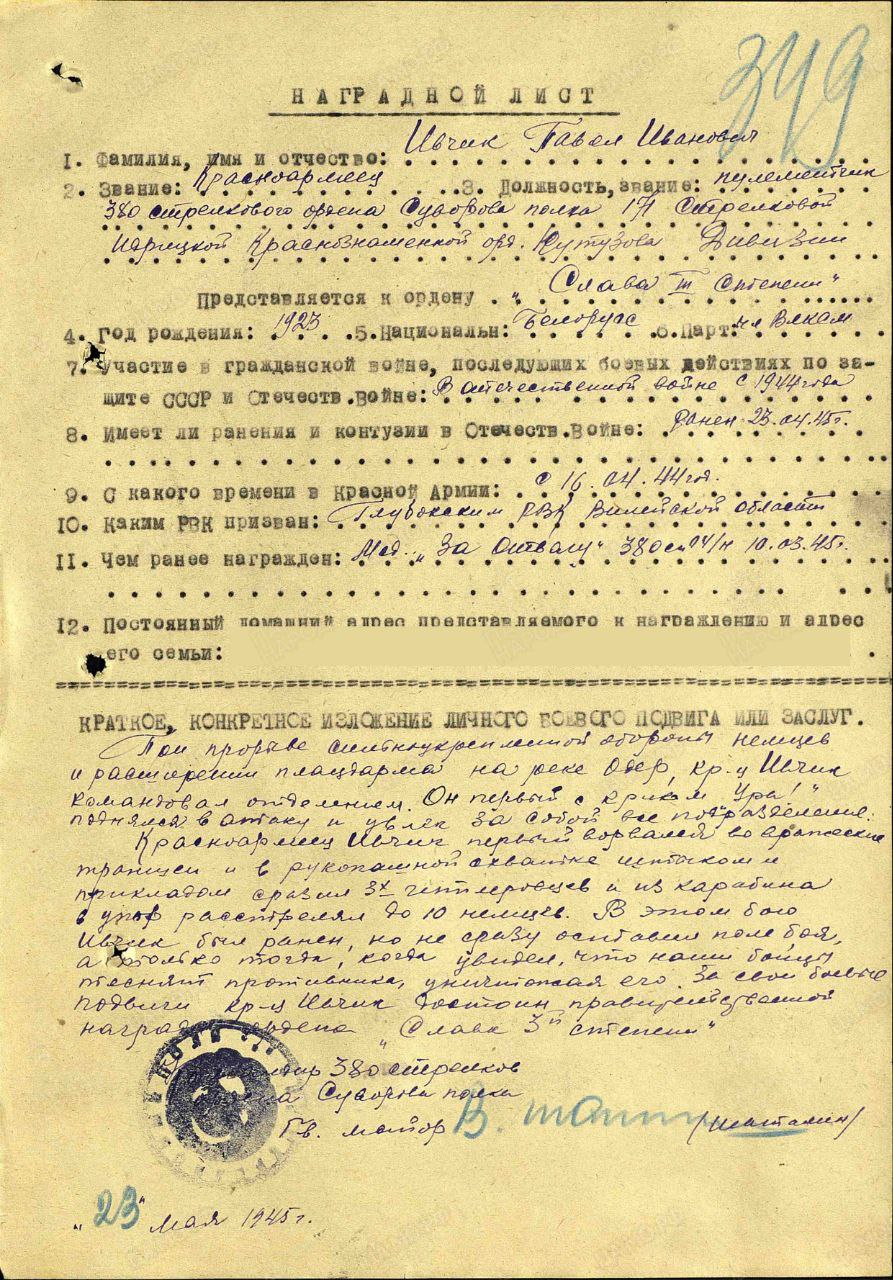 349
НАГРАДНОЙ ЛИСТ
1. Фамилия, имя и отчество: Ивчик Павел Иванович
2. Звание: Красноармеец 3. Должность, звание: пулеметчик
380 стрелкового ордена Суворова полка 171 Стрелковой
Идрицкой Краснознаменной орд. Кутузова Дивизии
Представляется к ордену „Слава III Степени"
4. Год рождения: 1923 5. Национальн: Белорус 6. Парт: чл Влксм
7. Участие в гражданской войне, последующих боевых действиях по за-
щите СССР и Отечеств.Войне: В отечественной войне с 1944 года
8. Имеет ли ранения и контузии в Отечеств.Войне: ранен 23.04.45г.
9. С какого времени в Красной Армии: с 16.04.44 год.
10. Каким РВК призван: Глубокским РВК Вилейской области
11. Чем ранее награжден: Мед. „За Отвагу" 380 сп 10.03.45г.
12. Постоянный домашний адрес представляемого к награждению и адрес
его семьи:
КРАТКОЕ, КОНКРЕТНОЕ ИЗЛОЖЕНИЕ ЛИЧНОГО БОЕВОГО ПОДВИГА ИЛИ ЗАСЛУГ.
При прорыве сильноукрепленной обороны немцев
и расширении плацдарма на реке Одер, кр-ц Ивчик
командовал отделением. Он первый с криком Ура!"
поднялся в атаку и увлек за собой все подразделение.
Красноармеец Ивчик первый ворвался во вражеские
траншеи и в рукопашной схватке штыком и
прикладом сразил 3х гитлеровцев и из карабина
в упор расстрелял до 10 немцев. В этом бою
Ивчик был ранен, но не сразу оставил поле боя,
а только тогда, когда увидел, что наши бойцы
теснят противника, уничтожая его. За свои боевые
подвиги кр-ц Ивчик достоин правительственной
награды ордена „Слава 3й степени"
Командир 380 стрелков
ордена Суворова полка
Гв. майор /Шаталин/
„23" мая 1945г.